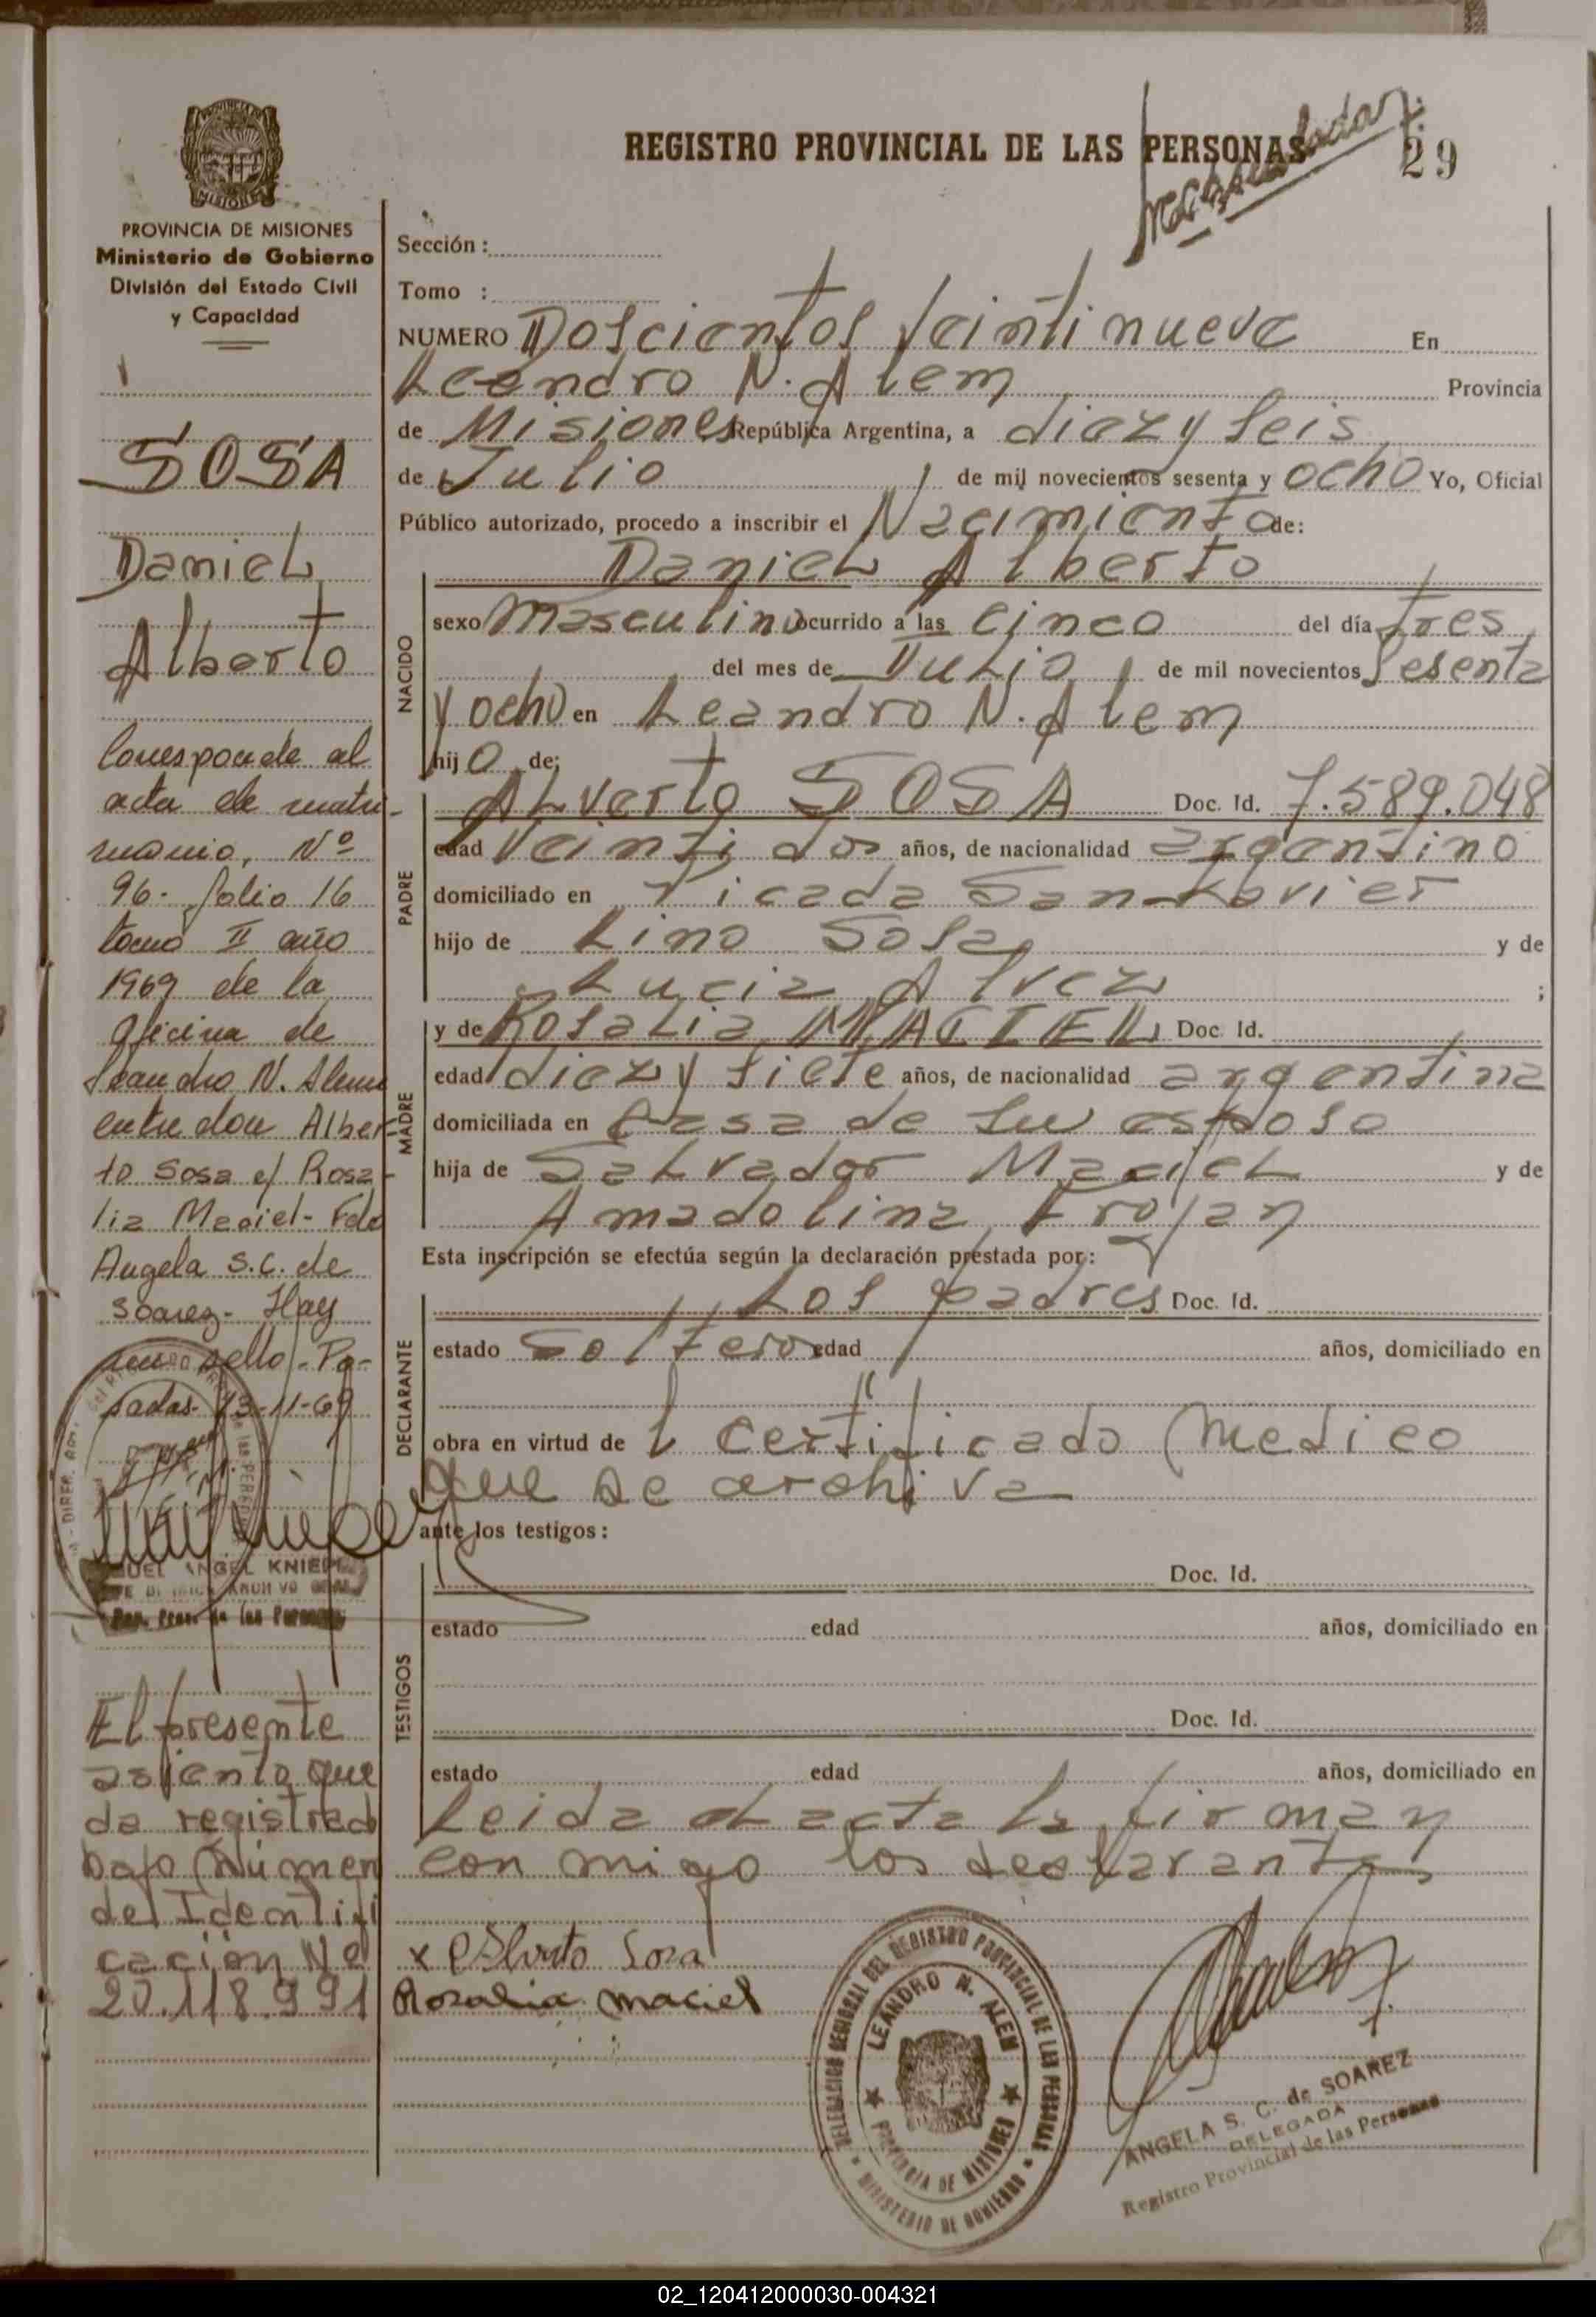 REGISTRO PROVINCIAL DE LAS PERSONAS
29
PROVINCIA DE MISIONES
Ministerio de Gobierno
División del Estado Civil
y Capacidad
SOSA
Daniel
Alberto
Corresponde al
acta de matri-
monio, Nº
96- folio 16
tomo II año
1969 de la
oficina de
Leandro N. Alem
entre don Alber-
to Sosa c/ Rosa-
lia Maciel- Fdo
Angela S.C. de
Soarez- Hay
un sello- Po-
sadas- 13-11-69
ANGEL KNIE
El presente
asiento que
da registrado
bajo Número
de Identifi
cación Nº
20.118.991
Sección :
Tomo :
NUMERO Doscientos Veinti nueve En
Leandro N. Alem Provincia
de Misiones República Argentina, a diez y seis
de Julio de mil novecientos sesenta y ocho Yo, Oficial
Público autorizado, procedo a inscribir el Nacimiento de:
NACIDO
Daniel Alberto
sexo Masculino ocurrido a las cinco del día tres
del mes de Julio de mil novecientos sesenta
y ocho en Leandro N. Alem
hijo de:
PADRE
Alverto SOSA Doc. Id. 7.589.048
edad Veinti dos años, de nacionalidad argentino
domiciliado en Picada San Javier
hijo de Lino Sosa y de
Lucia Alvez ;
MADRE
y de Rosalia MACIEL Doc. Id.
edad diez y siete años, de nacionalidad argentina
domiciliada en Casa de su esposo
hija de Salvador Maciel y de
Amadolina Troyan
Esta inscripción se efectúa según la declaración prestada por:
DECLARANTE
Los padres Doc. Id.
estado Soltero edad años, domiciliado en
obra en virtud de l certificado Medico
que se archiva
ante los testigos:
TESTIGOS
Doc. Id.
estado edad años, domiciliado en
Doc. Id.
estado edad años, domiciliado en
Leida el acta la firman
con migo los declarantes
x Alverto Sosa
Rosalia Maciel
DELEGACION SECCIONAL DEL REGISTRO PROVINCIAL DE LAS PERSONAS
LEANDRO N. ALEM
PROVINCIA DE MISIONES
MINISTERIO DE GOBIERNO
ANGELA S. C. de SOAREZ
DELEGADA
Registro Provincial de las Personas
02_120412000030-004321